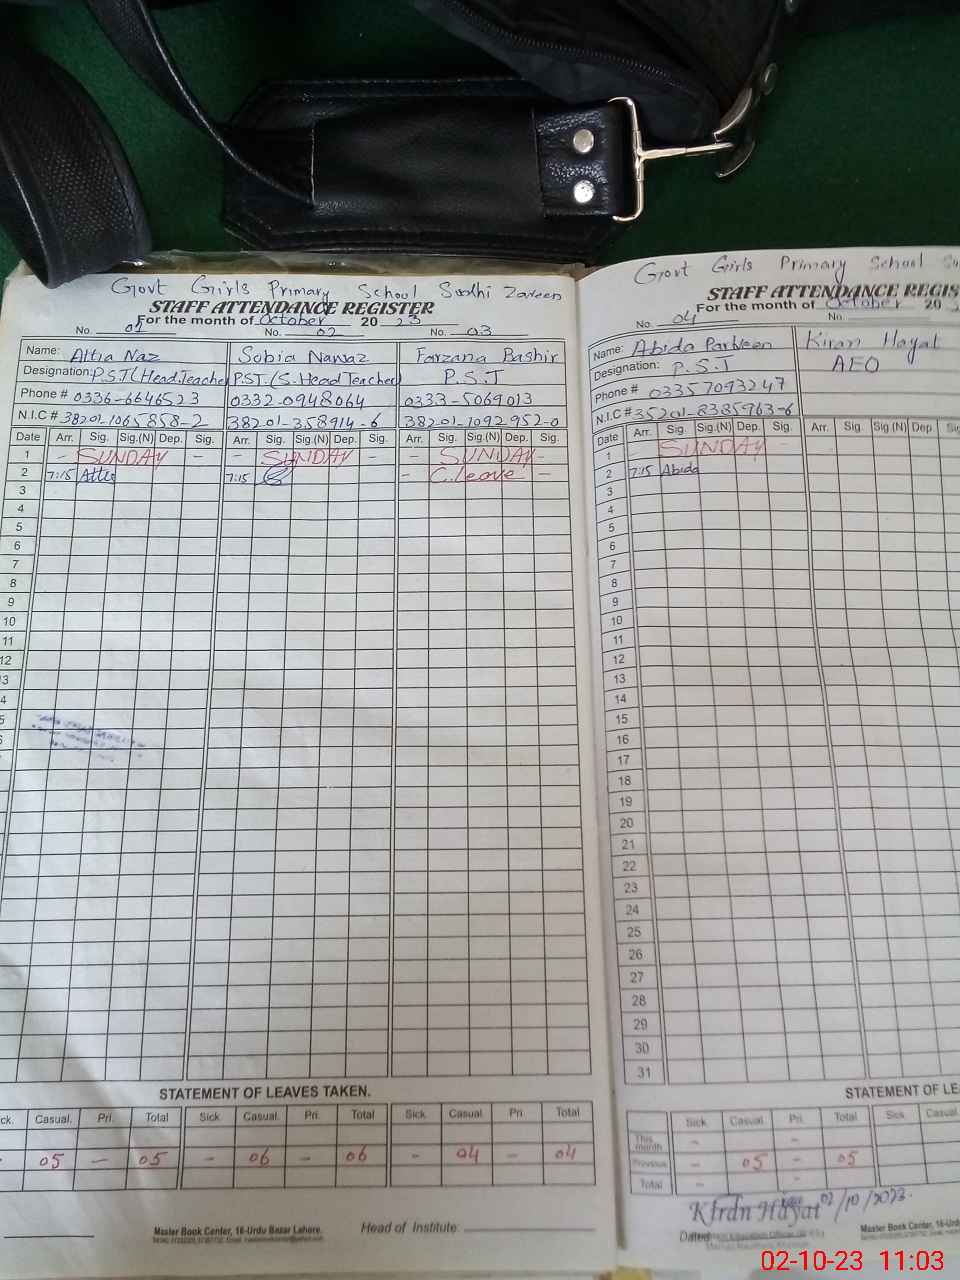 Govt Girls Primary School Sudhi Zareen
STAFF ATTENDANCE REGISTER
For the month of October 2023
No. 01 No. 02 No. 03
Name: Attia Naz Sobia Nawaz Farzana Bashir
Designation: P.S.T (Head Teacher) P.ST. (S. Head Teacher) P.S.T
Phone # 0336-6646523 0332-0948064 0333-5069013
N.I.C # 38201-1065858-2 38201-358914-6 38201-1092952-0
Date Arr. Sig. Sig.(N) Dep. Sig. Arr. Sig. Sig.(N) Dep. Sig. Arr. Sig. Sig.(N) Dep. Sig.
1 - SUNDAY - - SUNDAY - - SUNDAY -
2 7:15 Attia 7:15 - C.leave -
3
4
5
6
7
8
9
10
11
12
13
4
5
6
STATEMENT OF LEAVES TAKEN.
ck. Casual. Pri. Total Sick. Casual. Pri. Total Sick Casual. Pri. Total
- 05 - 05 - 06 - 06 - 04 - 04
Master Book Center, 16-Urdu Bazar Lahore.
Head of Institute:
Govt Girls Primary School
STAFF ATTENDANCE REGIS
For the month of October 20
No. 04 No.
Name: Abida Parveen Kiran Hayat
Designation: P.S.T AEO
Phone # 03357093247
N.I.C # 35201-8385963-6
Date Arr. Sig. Sig.(N) Dep. Sig. Arr. Sig. Sig (N) Dep. Sig
1 - SUNDAY -
2 7:15 Abida
3
4
5
6
7
8
9
10
11
12
13
14
15
16
17
18
19
20
21
22
23
24
25
26
27
28
29
30
31
STATEMENT OF LE
Sick. Casual. Pri. Total Sick. Casual.
This month - -
Previous - 05 - 05
Total - -
Kiran Hayat 02/10/2023.
Dated
Master Book Center, 16-Ur
02-10-23 11:03